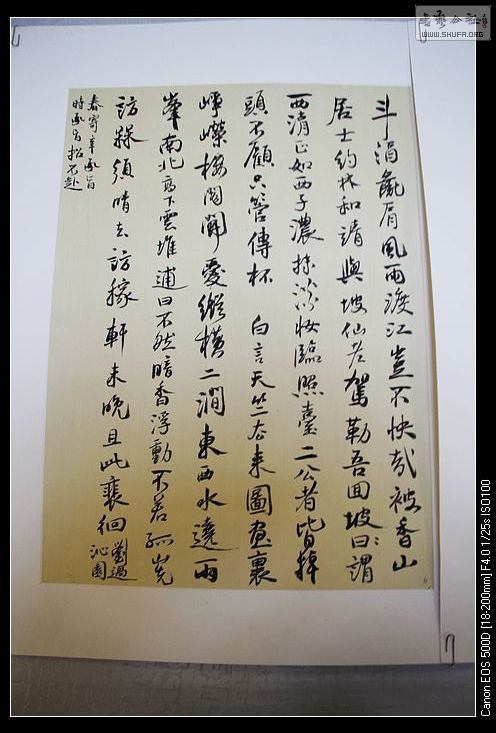 斗酒彘肩風雨渡江豈不快哉被香山
居士約林和靖與坡仙老駕勒吾回坡曰謂
西湖正如西子濃抹淡妝臨照臺二公者皆掉
頭不顧只管傳杯 白言天竺去來圖畫裏
崢嶸樓閣開愛縱橫二澗東西水遶兩
峯南北高下雲堆逋曰不然暗香浮動不若孤山先
訪梅須晴去訪稼軒未晚且此裵徊
劉過
沁園
春寄辛承旨
時承旨招不赴
書藝公社
WWW.SHUFA.ORG
Canon EOS 500D [18-200mm] F4.0 1/25s ISO100